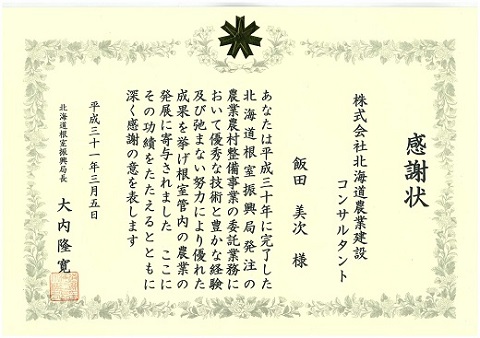 感謝状
株式会社北海道農業建設
コンサルタント
飯田 美次 様
あなたは平成三十年に完了した
北海道根室振興局発注の
農業農村整備事業の委託業務に
おいて優秀な技術と豊かな経験
及び弛まない努力により優れた
成果を挙げ根室管内の農業の
発展に寄与されました ここに
その功績をたたえるとともに
深く感謝の意を表します
平成三十一年三月五日
北海道根室振興局長 大内隆寛